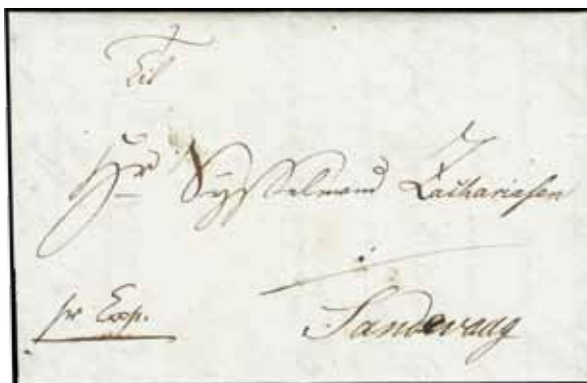 Til
Hr Sysselmand Zachariasen
i
Sandevaag
pr Exp.